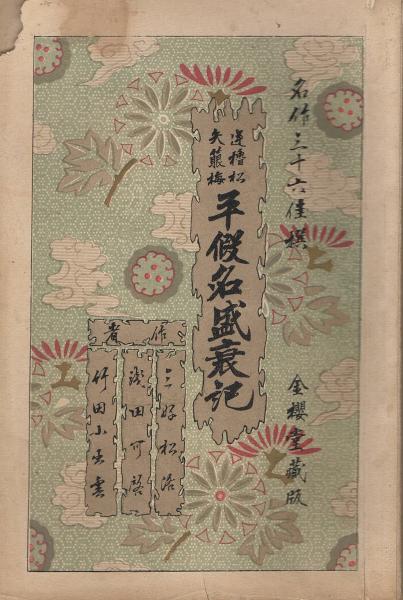 名作三十六佳撰
金櫻堂藏版
逆櫓松
矢箙梅
平假名盛衰記
作者
三好松洛
淺田可啓
竹田小出雲